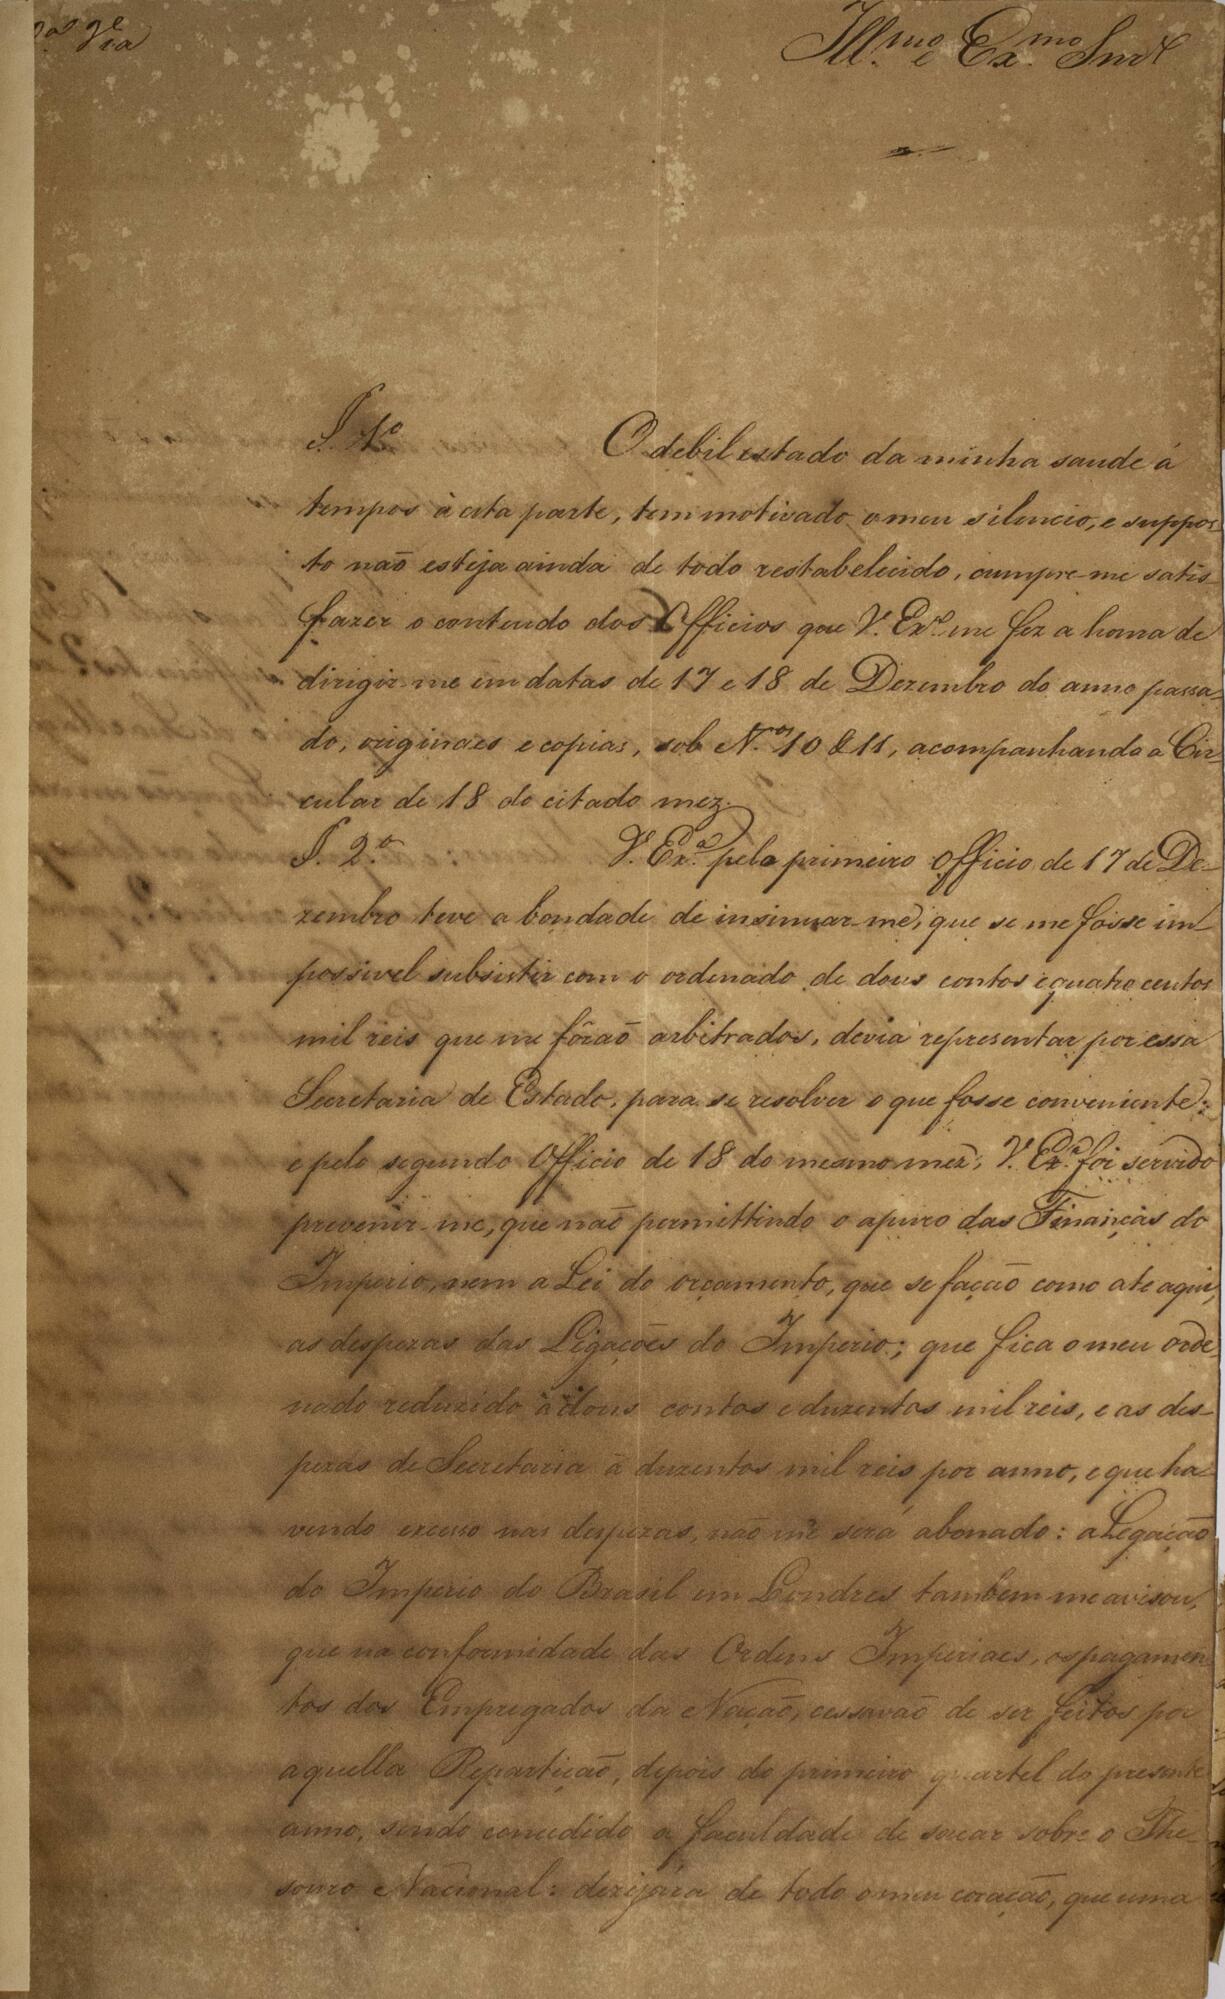 2ª Via
Ill.mo e Ex.mo Snr.
§. 1º O debil estado da minha saude á
tempos à esta parte, tem motivado o meu silencio, e suppos-
to naõ esteja ainda de todo restabelecido, cumpre-me satis-
fazer o contendo dos Officios que V. Ex.ª me fez a honra de
dirigir-me em datas de 17 e 18 de Dezembro do anno passa-
do, originaes e copias, sob N.os 10 & 11, acompanhando a Cir-
cular de 18 do citado mez.
§. 2.º V. Ex.ª pelo primeiro Officio de 17 de De-
zembro teve a bondade de insinuar-me, que se me fosse im-
possivel subsistir com o ordenado de dous contos e quatro centos
mil reis que me fôraõ arbitrados, devia representar por essa
Secretaria de Estado, para se resolver o que fosse conveniente:
e pelo segundo Officio de 18 do mesmo mez, V. Ex.ª foi servido
prevenir-me, que naõ permittindo o apuro das Finanças do
Imperio, nem a Lei do orçamento, que se façaõ como ate aqui,
as despezas das Ligações do Imperio; que fica o meu orde-
nado reduzido à dous contos e duzentos mil reis, e as des-
pezas de Secretaria à duzentos mil reis por anno, e que ha-
vendo excesso nas despezas, naõ me será abonado: a Legaçaõ
do Imperio do Brasil em Londres tambem me avisou,
que na conformidade das Ordens Imperiaes, os pagamen-
tos dos Empregados da Naçaõ, cessavaõ de ser feitos por
aquella Repartiçaõ, depois do primeiro quartel do presente
anno, sendo concedido a faculdade de sacar sobre o The-
souro Nacional: dezejára de todo o meu coraçaõ, que uma